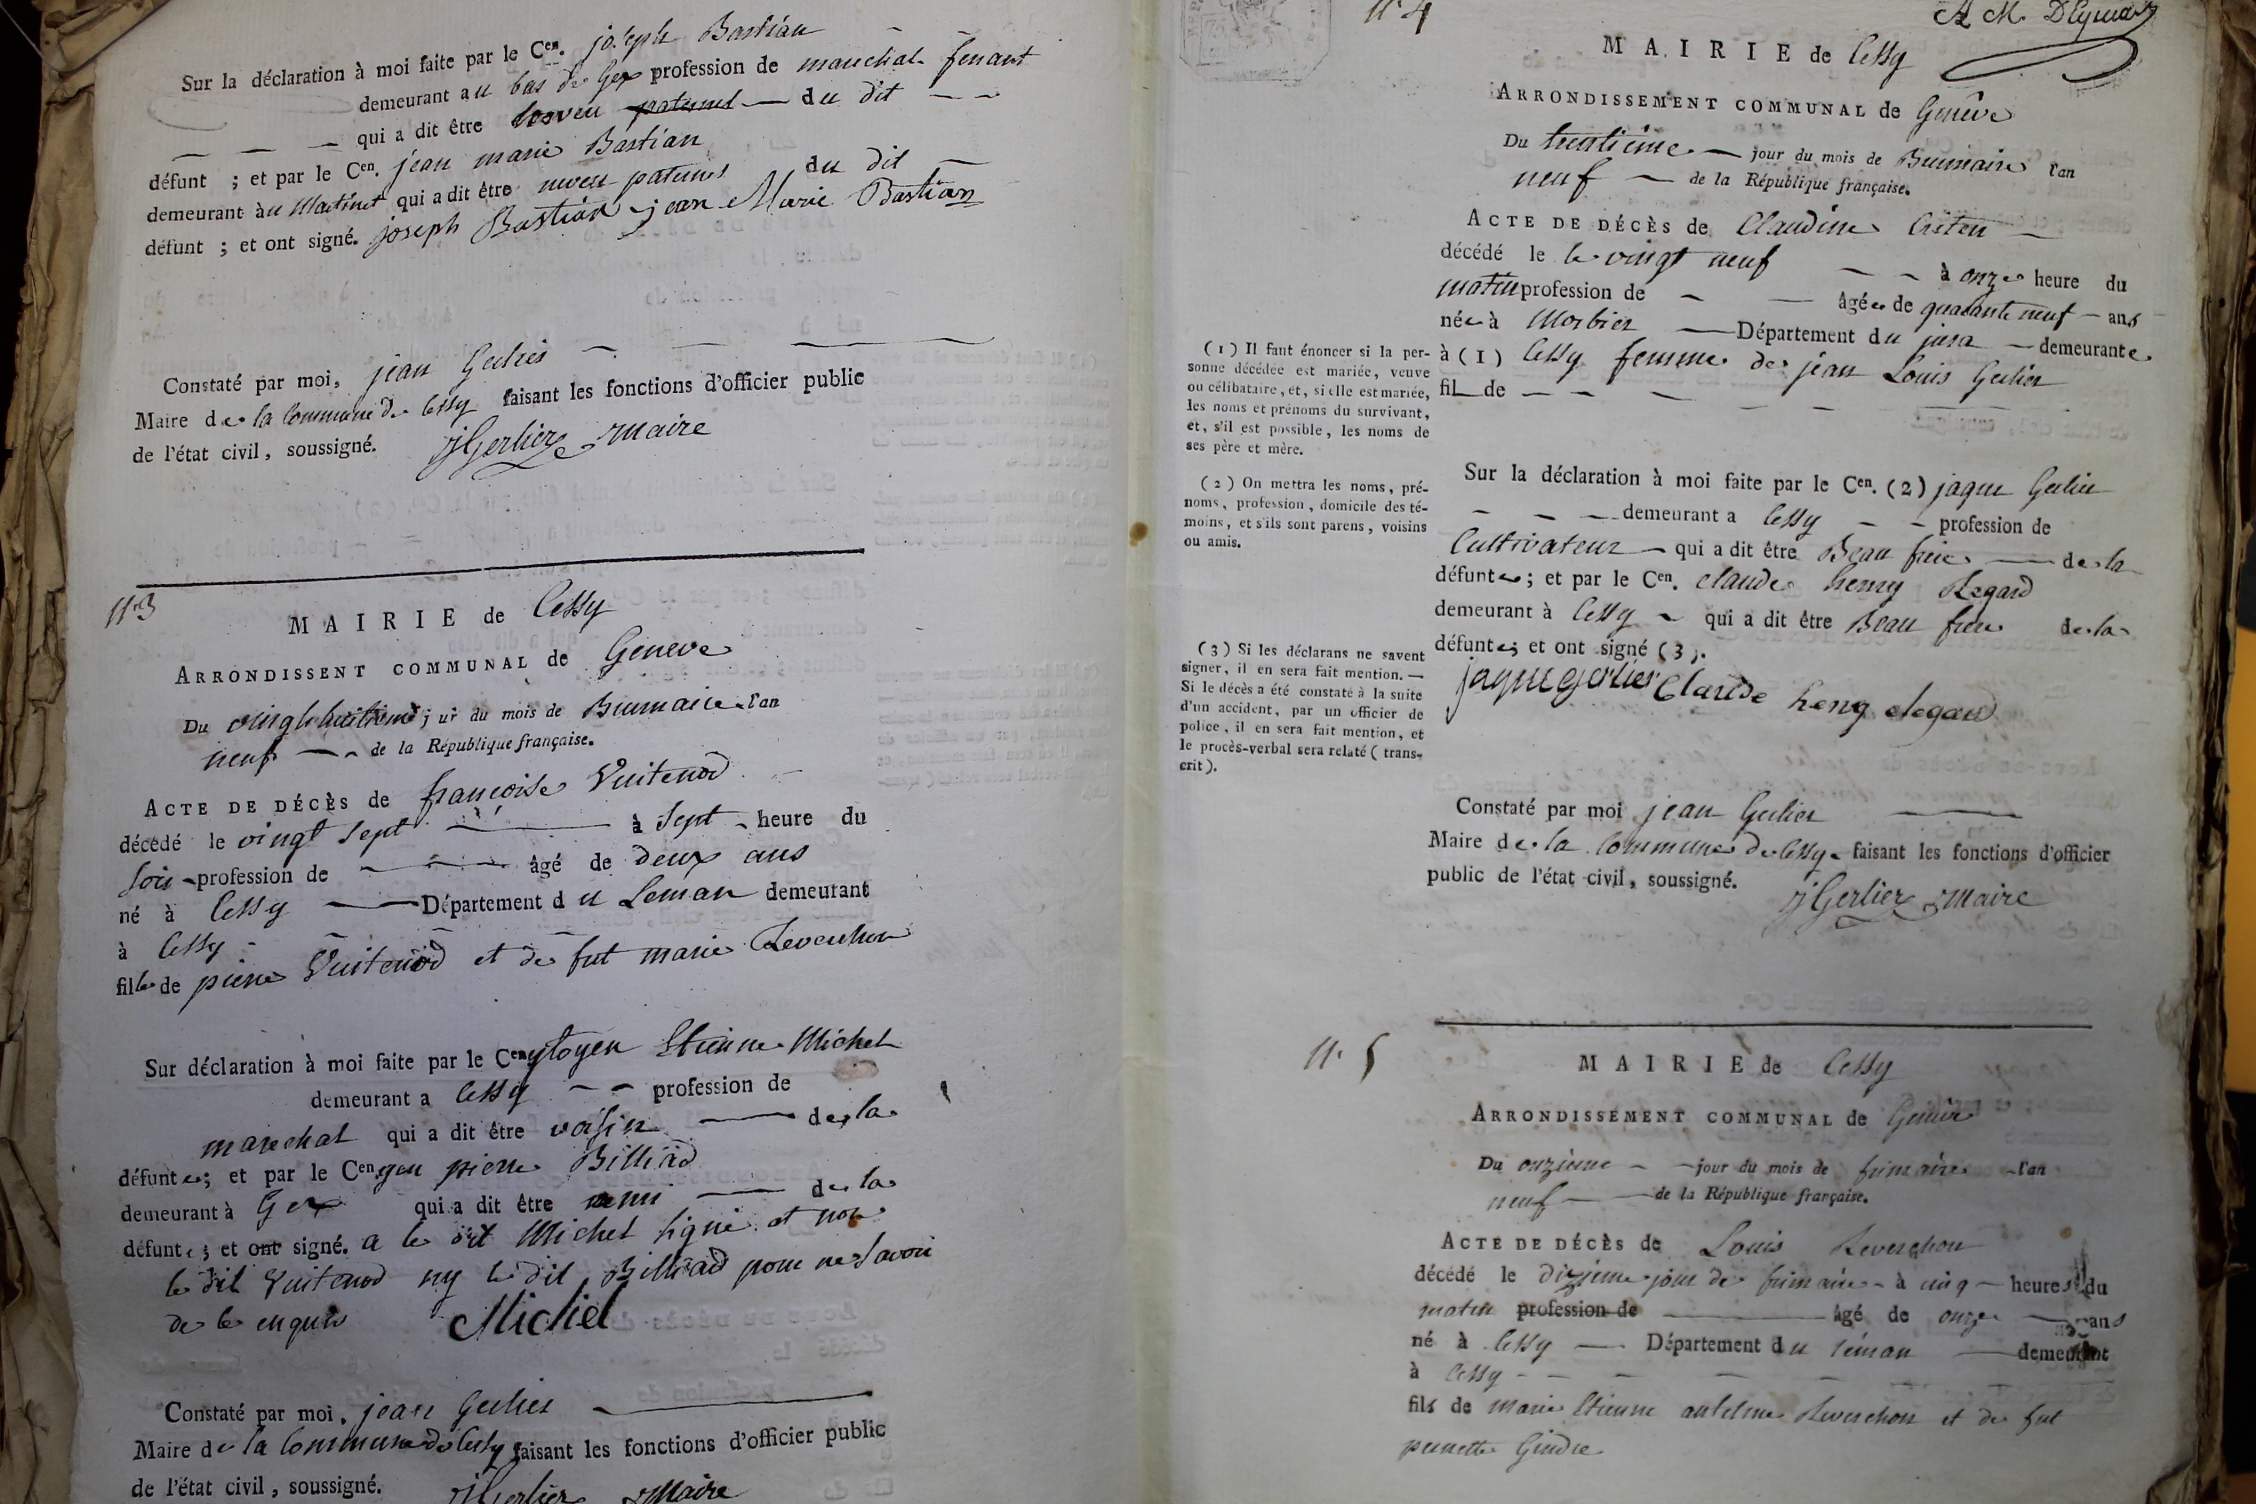 Sur la déclaration à moi faite par le Cen. joseph Bastian
demeurant au bas de Gex profession de marechal ferant
qui a dit être neveu paternel du dit
défunt ; et par le Cen. jean marie Bastian
demeurant au Martinet qui a dit être neveu paternel du dit
défunt ; et ont signé. joseph Bastian jean Marie Bastian
Constaté par moi, jean Gerlier
Maire de la commune de Cessy faisant les fonctions d'officier public
de l'état civil, soussigné. jGerlier Maire
n.3
MAIRIE de Cessy
ARRONDISSENT COMMUNAL de Geneve
Du vingt huitieme jour du mois de Brumaire l'an
neuf de la République française.
ACTE DE DÉCÈS de francoise Vuitenod
décédé le vingt sept à sept heure du
soir profession de âgé de deux ans
né à Cessy Département du Leman demeurant
à Cessy
fille de pierre Vuitenod et de fut marie Reverchon
Sur déclaration à moi faite par le Cenytoyen Etienne Michel
demeurant a Cessy profession de
marechal qui a dit être voisin de la
défunte ; et par le Cen pierre Billiad
demeurant à Gex qui a dit être ami de la
défunte ; et ont signé. a le dit Michel signé et non
le dit Vuitenod ny le dit Billiad pour ne savoir
de ce enquis Michel
Constaté par moi, jean Gerlier
Maire de la commune de Cessy faisant les fonctions d'officier public
de l'état civil, soussigné. jGerlier Maire
n.4
MAIRIE de Cessy
ARRONDISSEMENT COMMUNAL de Genêve
Du trentième jour du mois de Brumaire l'an
neuf de la République française.
ACTE DE DÉCÈS de Claudine
décédé le le vingt neuf à onze heure du
matin profession de âgée de quarante neuf ans
née à Morbier Département du jura demeurante
à (1) Cessy femme de jean Louis Gerlier
fil de
Sur la déclaration à moi faite par le Cen. (2) jaque Gerlier
demeurant a Cessy profession de
Cultivateur qui a dit être Beau frere de la
défunte ; et par le Cen. claude henry Regard
demeurant à Cessy qui a dit être Beau frere de la
défunte ; et ont signé (3).
jaque gerlier Claude heny Regard
(1) Il faut énoncer si la per-
sonne décédée est mariée, veuve
ou célibataire, et, si elle est mariée,
les noms et prénoms du survivant,
et, s'il est possible, les noms de
ses père et mère.
(2) On mettra les noms, pré-
noms, profession, domicile des té-
moins, et s'ils sont parens, voisins
ou amis.
(3) Si les déclarans ne savent
signer, il en sera fait mention. —
Si le décès a été constaté à la suite
d'un accident, par un officier de
police, il en sera fait mention, et
le procès-verbal sera relaté (trans-
crit).
Constaté par moi jean Gerlier
Maire de la commune de Cessy faisant les fonctions d'officier
public de l'état civil, soussigné.
jGerlier Maire
n. 5
MAIRIE de Cessy
ARRONDISSEMENT COMMUNAL de Genève
Du onzieme jour du mois de frimaire l'an
neuf de la République française.
ACTE DE DÉCÈS de Louis Reverchon
décédé le dizieme jour de frimaire à cinq heures du
matin profession de âgé de onze ans
né à Cessy Département du léman demeurant
à Cessy
fils de marie Etienne anselme Reverchon et de fut
pernette Gindre